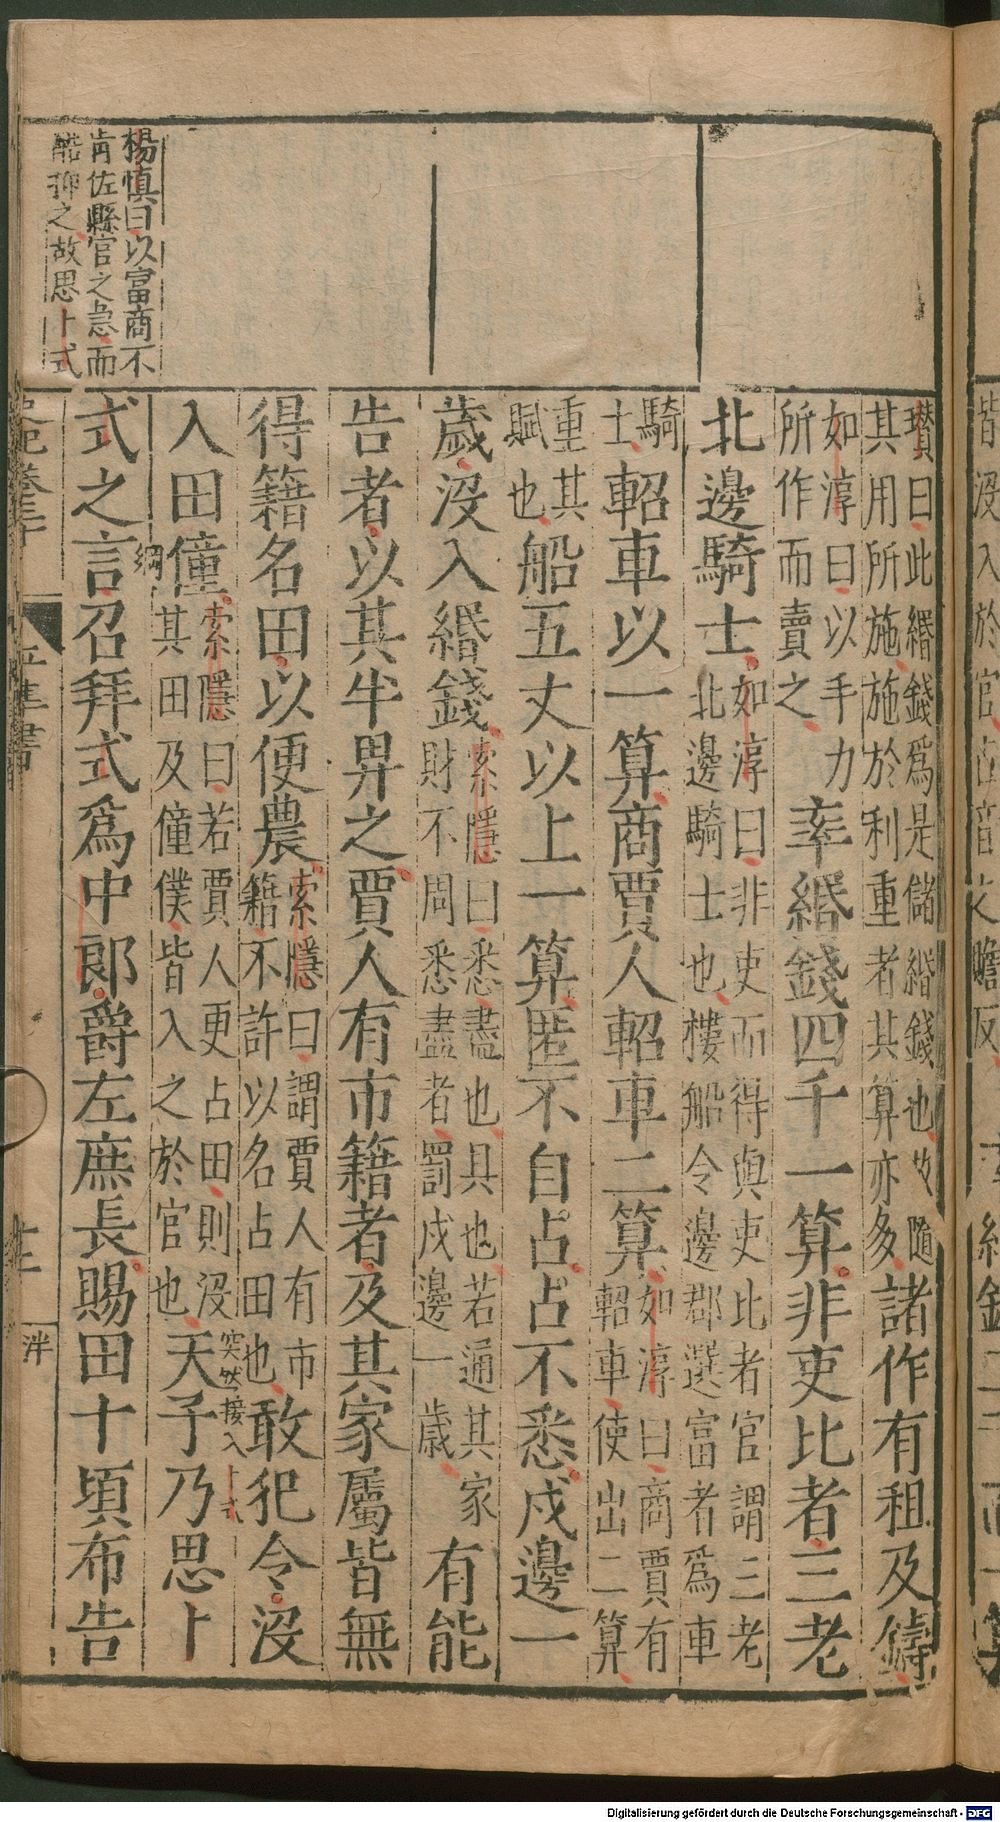 楊慎曰以富商不
肯佐縣官之急而
酷抑之故思卜式
瓚曰此緡錢爲是儲緡錢也故隨
其用所施施於利重者其算亦多
諸作有租及鑄
如淳曰以手力
所作而賣之
率緡錢四千一算非吏比者三老
北邊騎士
如淳曰非吏而得與吏比者官謂三老
北邊騎士也樓船令邊郡選富者爲車
騎
士
軺車以一算商賈人軺車二算
如淳曰商賈有
軺車使出二算
重其
賦也
船五丈以上一算匿不自占占不悉戍邊一
歲沒入緡錢
索隱曰悉盡也具也若通其家
財不周悉盡者罰戍邊一歲
有能
告者以其半畀之賈人有市籍者及其家屬皆無
得籍名田以便農
索隱曰謂賈人有市
籍不許以名占田也
敢犯令沒
入田僮
索隱曰若賈人更占田則沒
其田及僮僕皆入之於官也
天子乃思卜
突然接入卜式
綱
式之言召拜式爲中郎爵左庶長賜田十頃布告
史記卷三十
平準書
泮
皆沒入於官
Digitalisierung gefördert durch die Deutsche Forschungsgemeinschaft - DFG